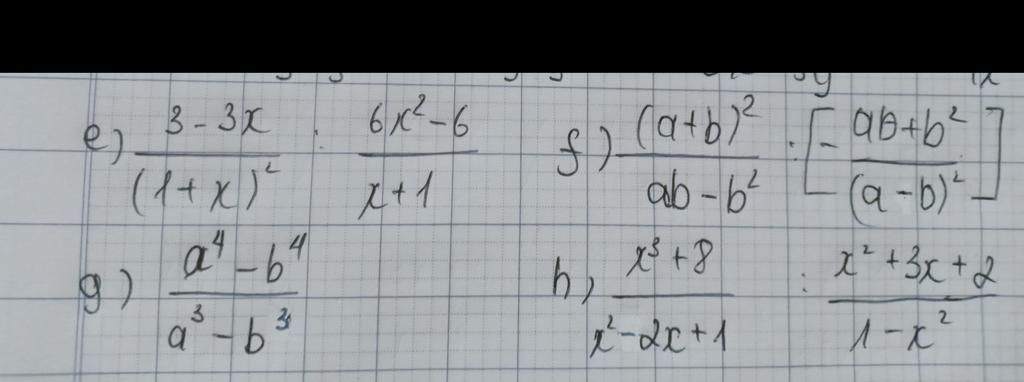 e) (3 - 3x)/(1 + x)² : (6x² - 6)/(x + 1) f) (a + b)²/(ab - b²) : [- (ab + b²)/(a - b)²]
g) (a⁴ - b⁴)/(a³ - b³) h, (x³ + 8)/(x² - 2x + 1) : (x² + 3x + 2)/(1 - x²)